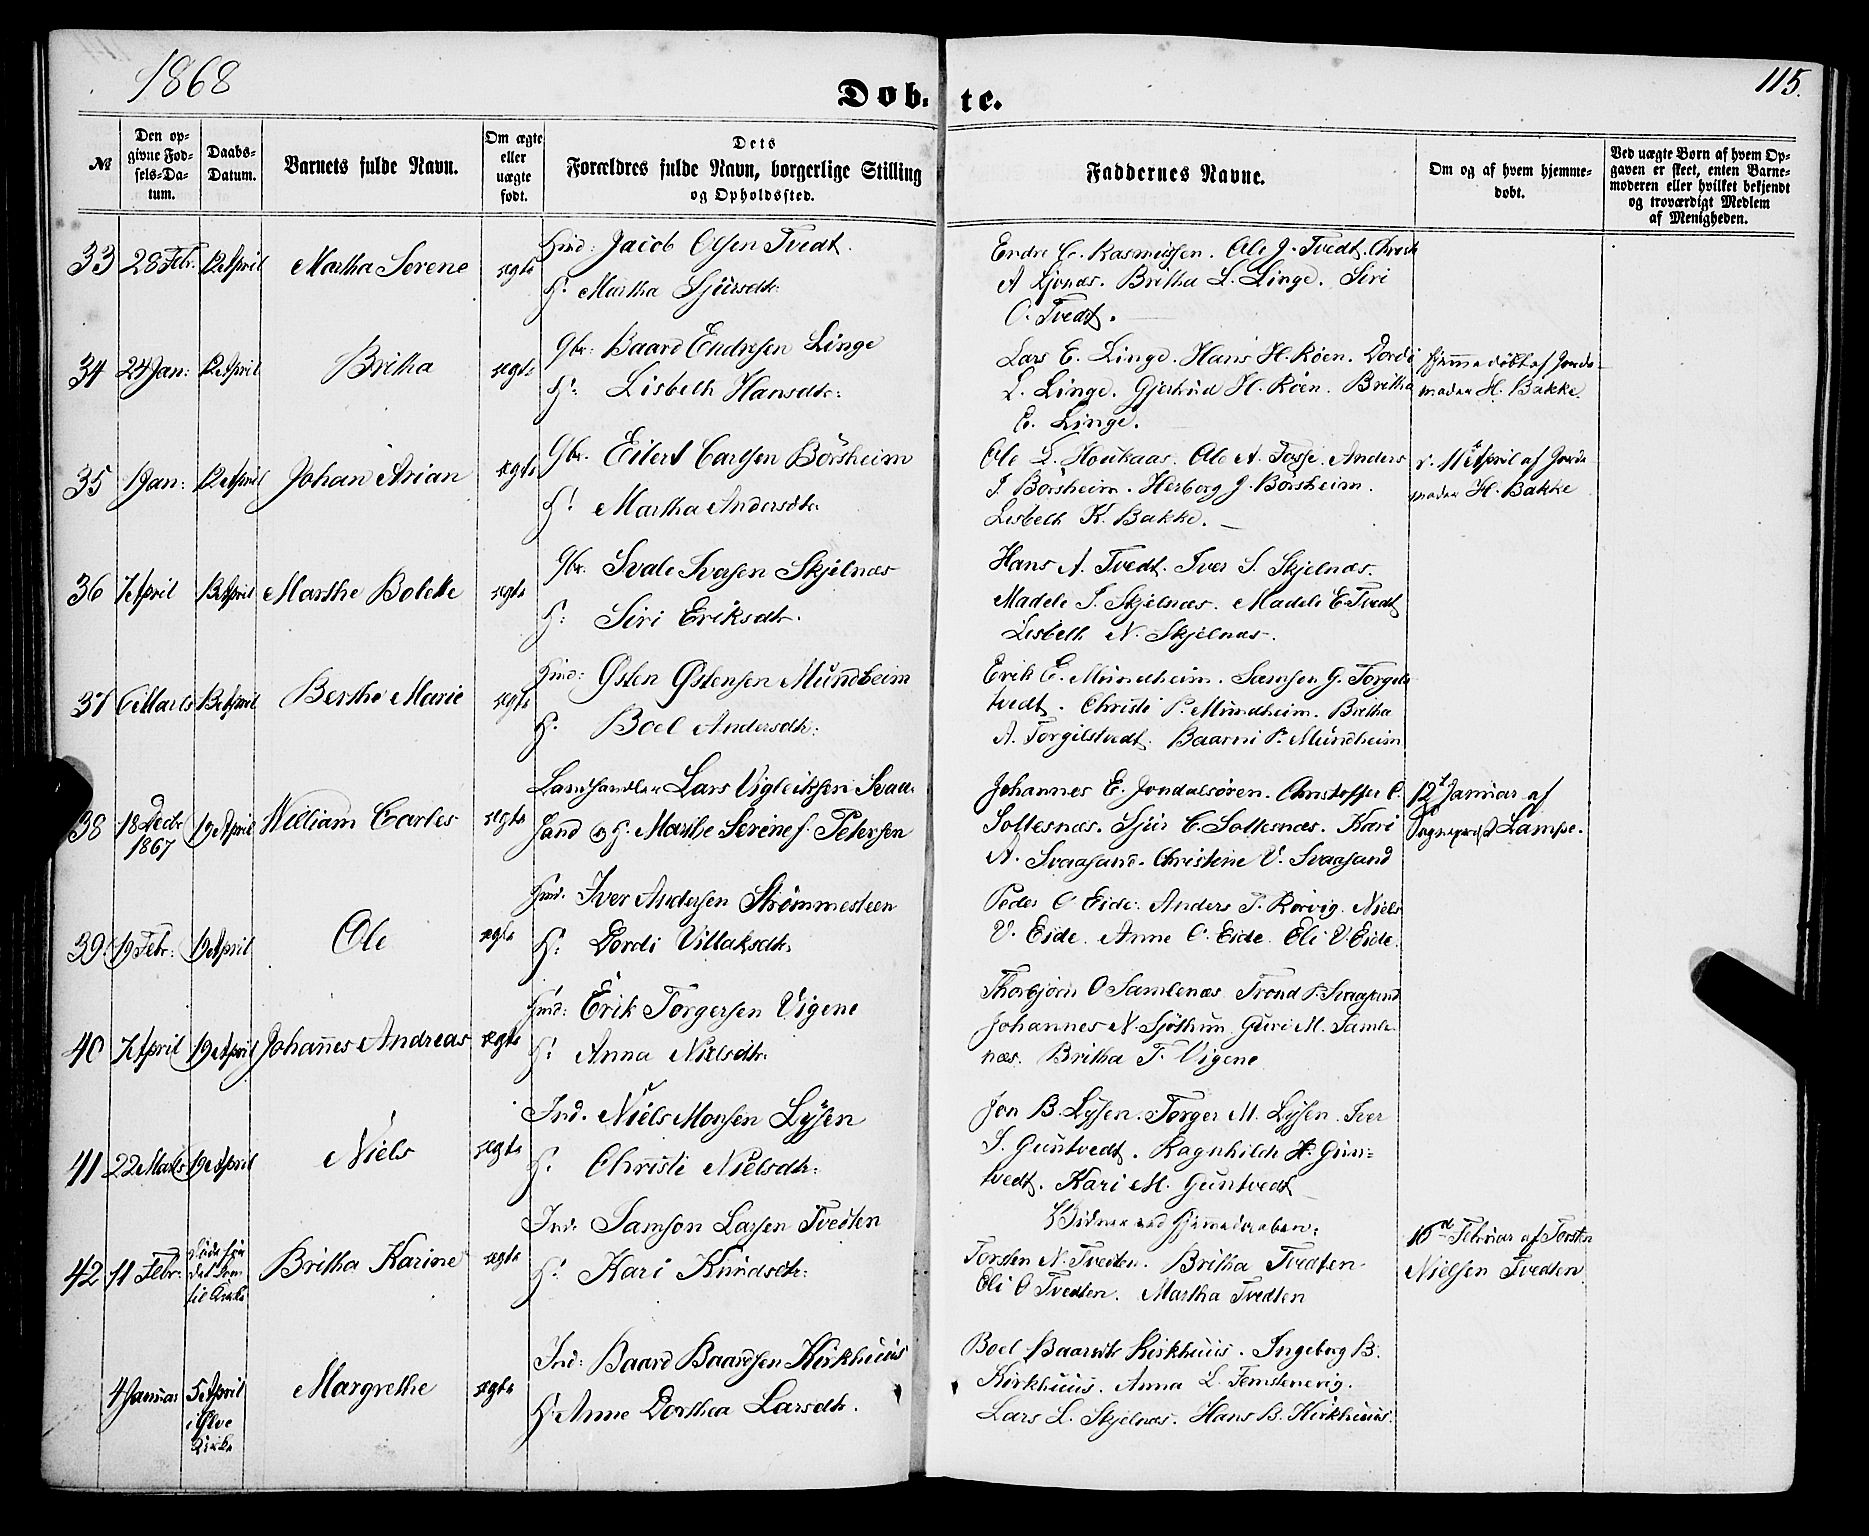 1868
115.
Døb. te.
№
Den op-
givne Fød-
sels-Da-
tum.
Daabs-
Datum.
Barnets fulde Navn.
Om ægte
eller
uægte
født.
Dets
Forældres fulde Navn, borgerlige Stilling
og Opholdssted.
Faddernes Navne.
Om og af hvem hjemme-
døbt.
Ved uægte Børn af hvem Op-
gaven er skeet, enten Barne-
moderen eller hvilket bekjendt
og troværdigt Medlem
af Menigheden.
33 28 Febr. 12 April Martha Serene ægte
Hmd: Jacob Olsen Tvedt.
H: Martha Sjursdtr.
Endre C. Rasmussen. Ole J. Tvedt.
A. Britha L. Linge. Siri
O. Tvedt.
34 24 Jan: 12 April Britha ægte
Gbr: Baard Endresen Linge
H: Lisbeth Hansdtr:
Lars E. Linge. Hans H. Røen. Dordi
L. Linge. Gjertrud H. Røen. Britha
E. Linge.
Hjemmedøbt af Jorde-
moder H. Bakke.
35 1 Jan: 12 April Johan Arian ægte
Gbr. Eilert Carlsen Börsheim
H: Martha Andersdtr.
Ole L. Houkaas. Ole A. Anders
J. Börsheim. Herborg J. Börsheim.
Lisbeth K. Bakke.
11te April af Jorde
moder H. Bakke
36 7 April 13 April Marthe Bolette ægte
Gbr. Svale Iversen Skjelnæs
H: Siri Eriksdtr.
Hans A. Tvedt. Iver S. Skjelnæs.
Madele S. Skjelnæs. Madele E. Tvedt
Lisbeth N. Skjelnæs.
37 6 Marts 13 April Berthe Marie ægte
Hmd: Østen Østensen Mundheim
H. Boel Andersdtr:
Erik E. Mundheim. Samson G. Torgils
tvedt. Christi P. Mundheim. Britha
A. Torgilstvedt. Baarni P. Mundheim
38 18 Decbr 19 April William Carles ægte
1867
Landhandler Lars Vigleiksen Svaa-
sand og H: Marthe Serine f. Petersen
Johannes E. Jondalsøren. Christoffer C.
Soltesnæs. Sjur C. Soltesnæs. Kari
A. Svaasand. Christine V. Svaasand
12te Januar af
Sogneprest Lampe.
39. 19 Febr: 19 April Ole ægte
Hmd. Iver Andersen Strømmesteen
H: Dordi Villaksdtr.
Peder O. Eide. Anders T. Rørvig. Niels
V. Eide. Anne O. Eide. Eli V. Eide.
40 7 April 19 April Johannes Andreas ægte
Hmd: Erik Torgersen Vigene
H: Anna Nielsdtr.
Thorbjørn O Samlenæs. Trond P. Svaasand
Johannes N. Guri M. Samle-
næs. Britha T. Vigene
41 22 Marts 19 April Niels ægte
Ind. Niels Monsen Lysen
H: Christi Nielsdtr:
Jon B. Lysen. Torger M. Lysen. Iver
S. Guntvedt. Ragnhilde H. Gun-
tvedt. Kari M. Guntvedt
42 11 Febr. Britha Karine ægte
Døde før
det kom
til Kirke
Ind: Samson Larsen Tvedten
H: Kari Knudsdtr.
Vidner ved Hjemmedaaben:
Torsten N. Tvedten. Britha Tvedten.
Eli O Tvedten. Martha Tvedten
16de Februar af Torsten
Nielsen Tvedten
4 Januar 5 April Margrethe ægte
i Ølve
Kirke
Ind: Baard Baardsen Kirkhuus
H: Anne Dorthea Larsdtr.
Boel Baardsdtr Kirkhuus. Ingeborg B.
Kirkhuus. Anna L. Femstenevig.
Lars L. Skjelnæs. Hans B. Kirkhuus.